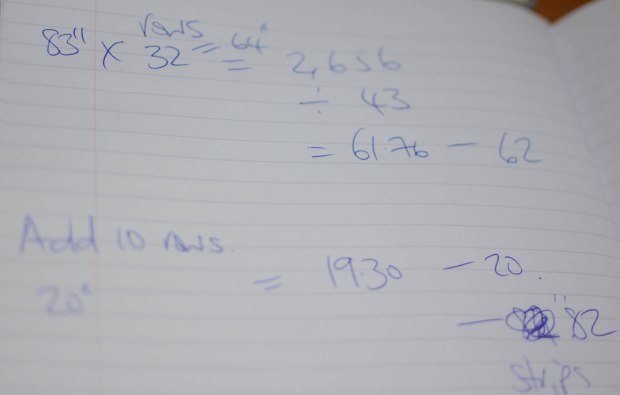 rows
83" x 32 = 64" = 2,656
÷ 43
= 61.76 - 62
Add 10 rows.
20" = 19.30 - 20.
- " 82
strips